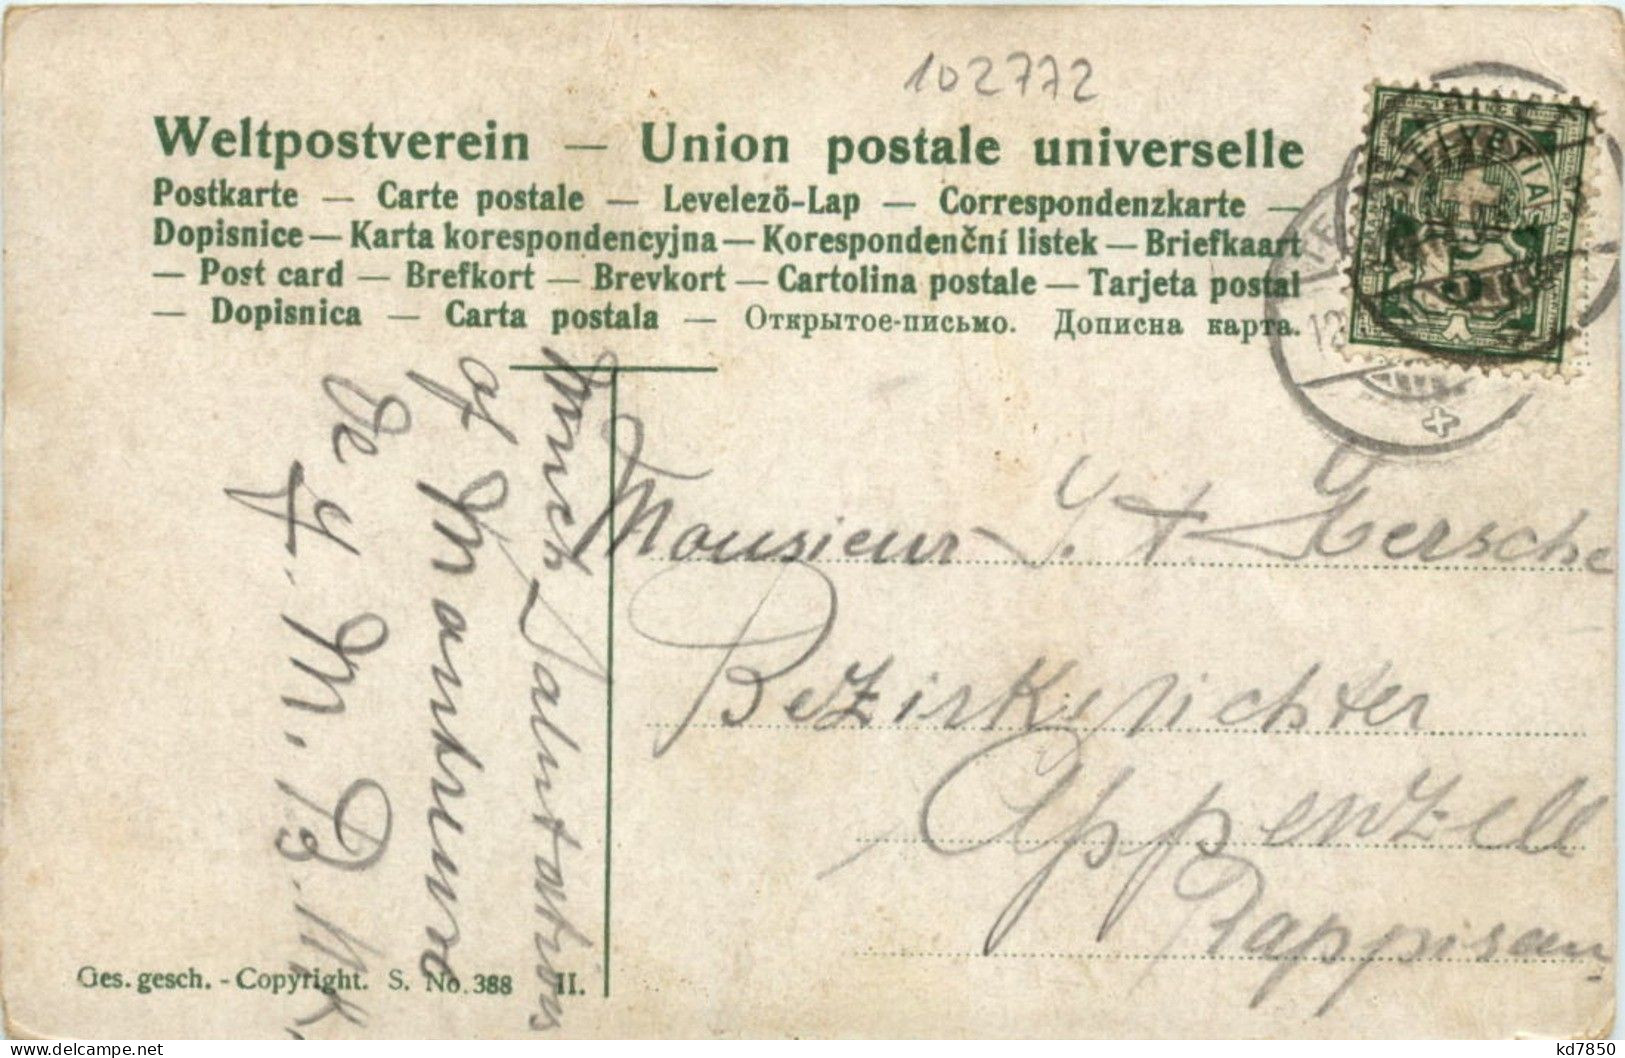 102772
Weltpostverein — Union postale universelle
Postkarte — Carte postale — Levelezö-Lap — Correspondenzkarte —
Dopisnice — Karta korespondencyjna — Korespondenční listek — Briefkaart
— Post card — Brefkort — Brevkort — Cartolina postale — Tarjeta postal
— Dopisnica — Carta postala — Открытое-письмо. Дописна карта.
HELVETIA
5
12
Monsieur J. A. Hersche
Bezirksrichter
Appenzell
Much Salutations
of Mantreux
de
Ges. gesch. - Copyright. S. No. 388 II.
kd7850